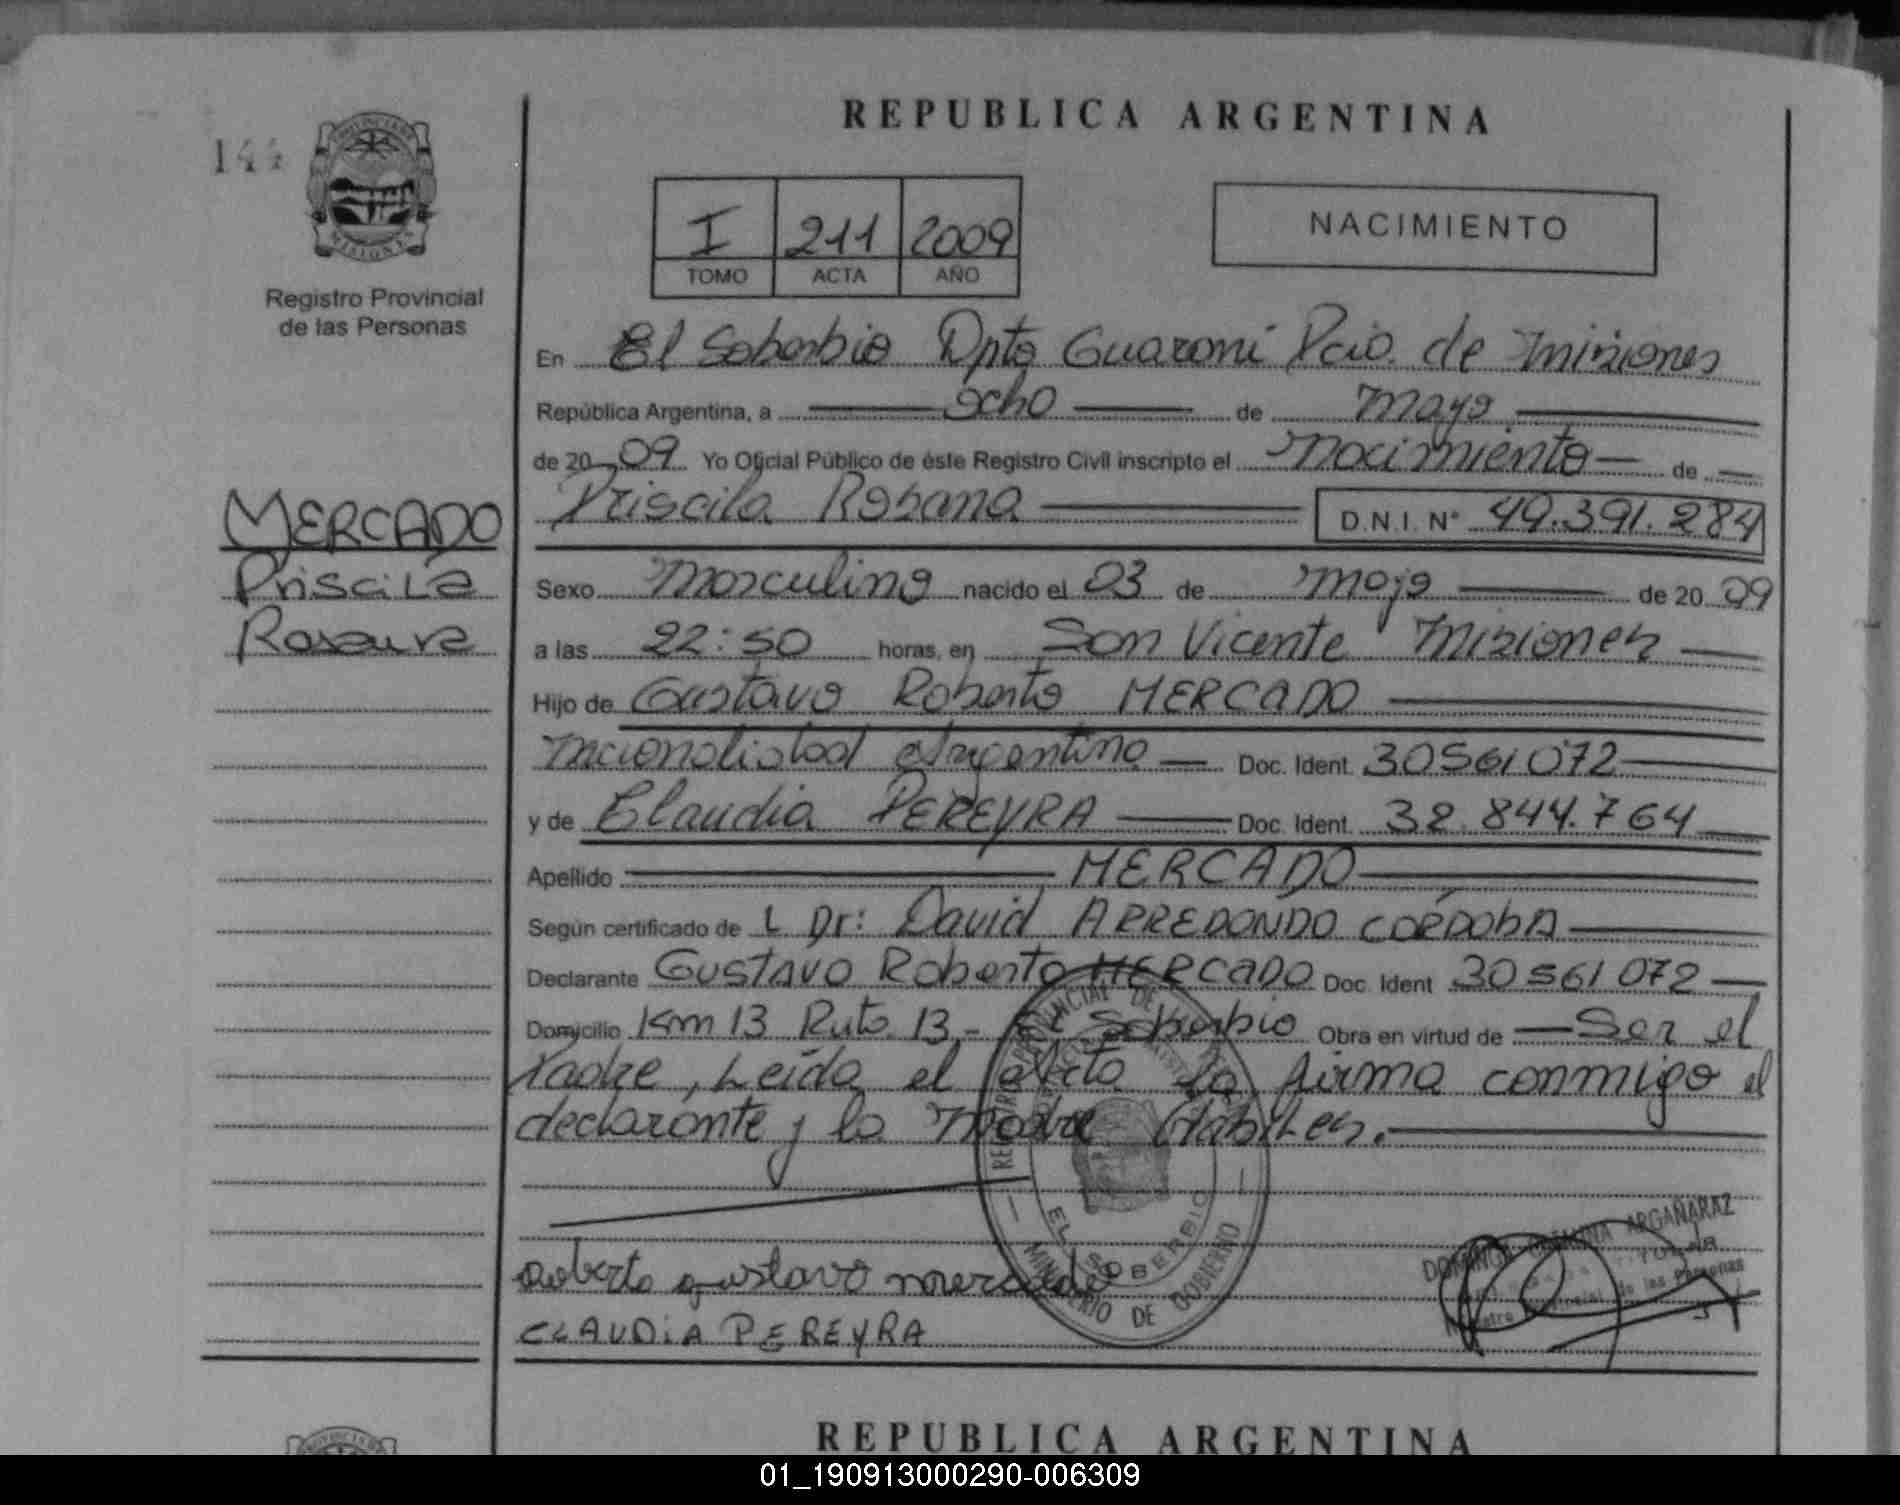 REPUBLICA ARGENTINA
144
PROVINCIA DE
MISIONES
Registro Provincial
de las Personas
I 211 2009
TOMO ACTA AÑO
NACIMIENTO
En El Soberbio Dpto Guaraní Pcia. de Misiones
República Argentina, a ocho de Mayo
de 2009 Yo Oficial Público de éste Registro Civil inscripto el Nacimiento de
Priscila Rosana D.N.I. N° 49.391.284
MERCADO
Priscila
Sexo Masculino nacido el 03 de Mayo de 2009
a las 22:50 horas, en San Vicente Misiones
Hijo de Gustavo Roberto MERCADO
nacionalidad Argentino Doc. Ident. 30561072
y de Claudia PEREYRA Doc. Ident. 32.844.764
Apellido MERCADO
Según certificado de L Dr: David ARREDONDO CORDOBA
Declarante Gustavo Roberto MERCADO Doc. Ident 30561072
Domicilio Km 13 Ruta 13 - El Soberbio Obra en virtud de Ser el
Padre, Leída el Acta la firma conmigo el
declarante y la Madre Hábiles.
EL SOBERBIO
MINISTERIO DE GOBIERNO
Roberto gustavo mercado
CLAUDIA PEREYRA
ARGAÑARAZ
de las Personas
REPUBLICA ARGENTINA
01_190913000290-006309